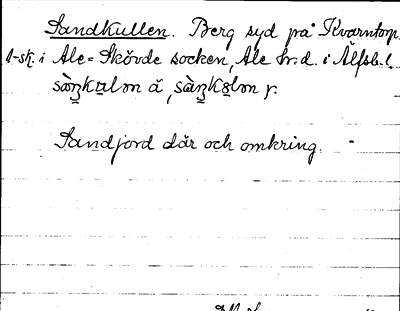 Sandkullen. Berg syd på Kvarntorp
1-sk. i Ale-Skövde socken, Ale hrd. i Älfsb. l.
sàn̠kulən ä, sàn̠kolən y.
Sandjord där och omkring.